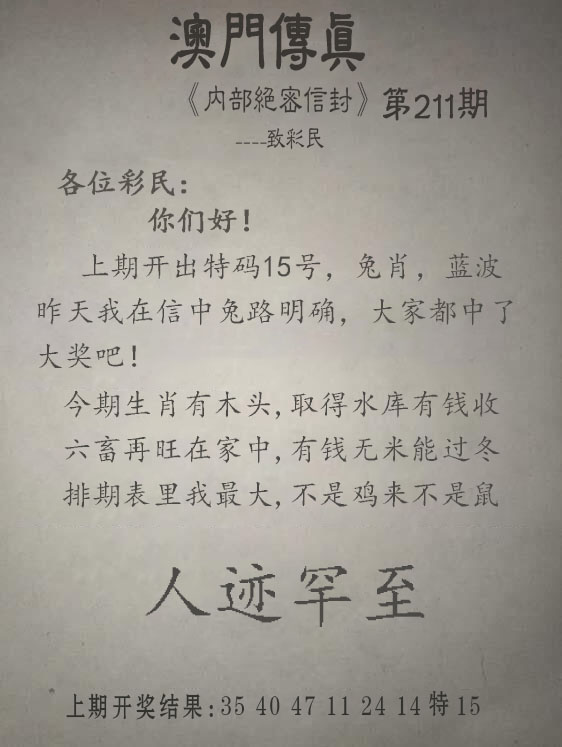 澳門傳眞
《内部絕密信封》第211期
----致彩民
各位彩民：
你们好！
上期开出特码15号，兔肖，蓝波
昨天我在信中兔路明确，大家都中了
大奖吧！
今期生肖有木头,取得水库有钱收
六畜再旺在家中,有钱无米能过冬
排期表里我最大,不是鸡来不是鼠
人迹罕至
上期开奖结果:35 40 47 11 24 14 特 15